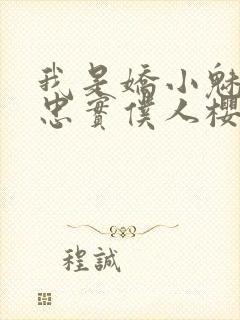 我是嬌小魅
忠實僕人櫻
程誠